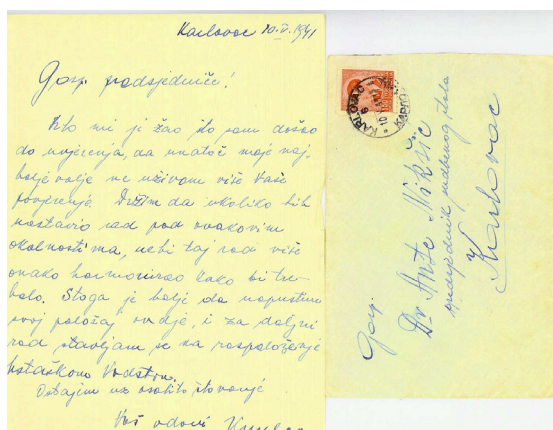 Karlovac 10.V.1941
Gosp. predsjedniče!
mi je žao što sam došao
do uvjerenja, da unatoč moje naj-
bolje volje ne uživam više Vaše
povjerenje. Držim da ukoliko bih
nastavio rad pod ovakovim
okolnostima, nebi taj rad više
onako harmonirao kako bi tre-
balo. Stoga je bolje da napustim
svoj položaj ovdje, i za daljni
rad stavljam se na raspoloženje
Ustaškom Vodstvu.
Ostajem uz osobito štovanje
Vaš odani
KARLOVAC
Gosp.
Dr Ante Nikšić
predsjednik sudbenog stola
Karlovac